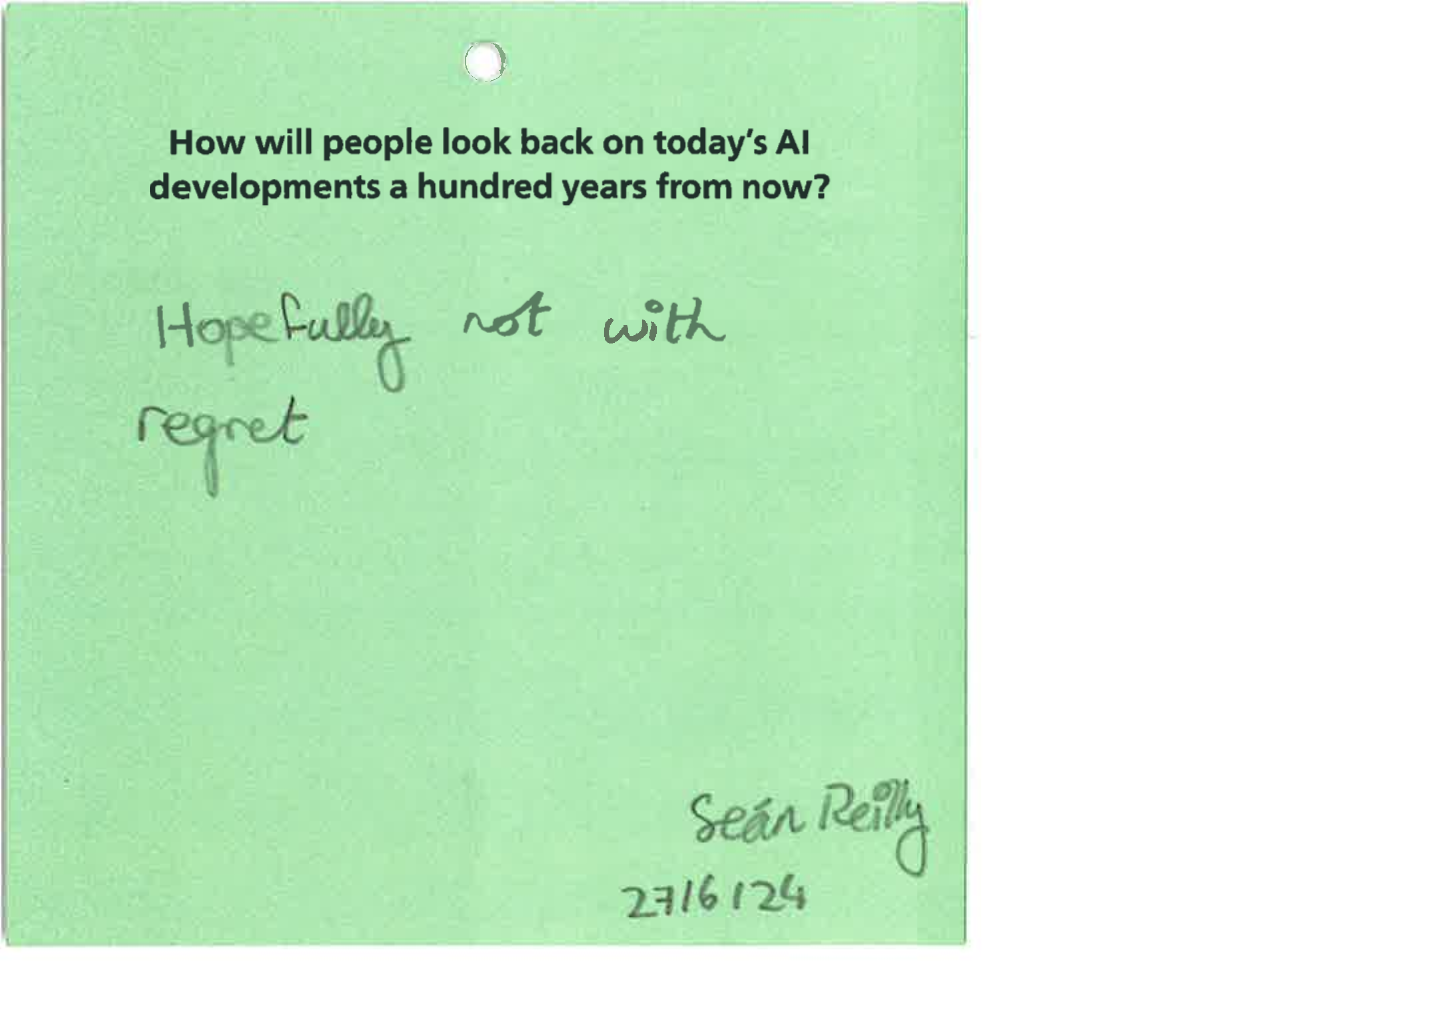 How will people look back on today's AI
developments a hundred years from now?
Hopefully not with
regret
Seán Reilly
27/6/24